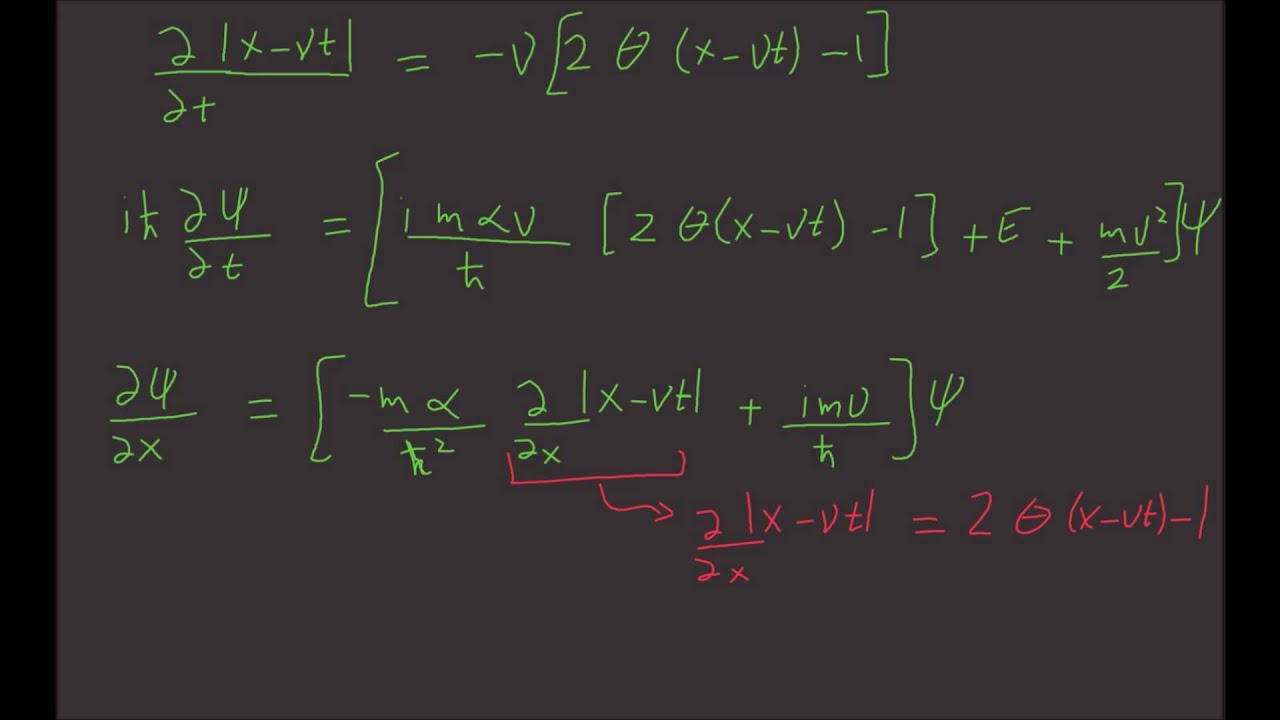 ∂|x-vt|/∂t = -v[2 θ (x-vt) -1]
iħ ∂ψ/∂t = [i m α v/ħ [2 θ(x-vt) -1] + E + mv²/2]ψ
∂ψ/∂x = [-m α/ħ² ∂|x-vt|/∂x + imv/ħ]ψ
∂|x-vt|/∂x = 2 θ (x-vt)-1